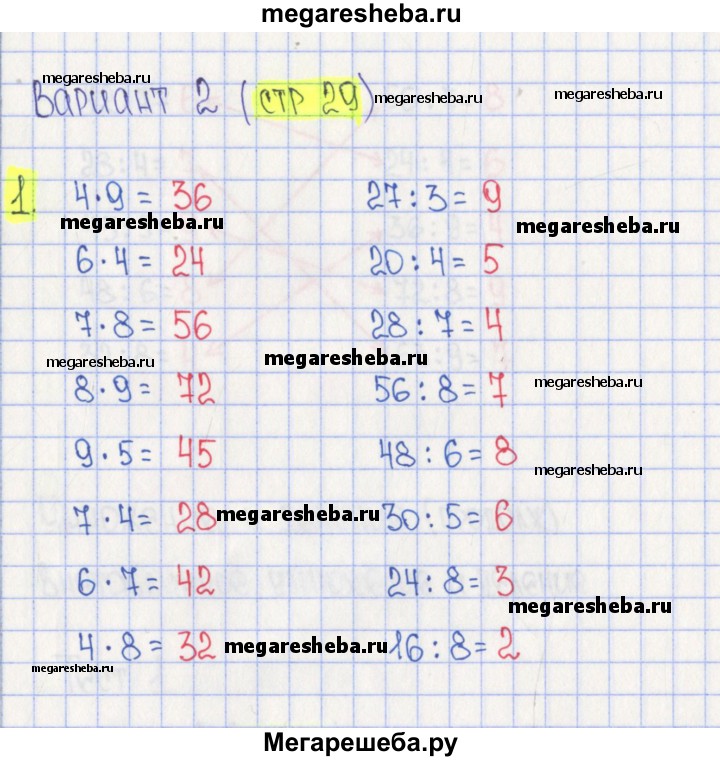 megaresheba.ru
megaresheba.ru
Вариант 2 (стр 29) megaresheba.ru megaresheba.ru
1. 4·9 = 36 27:3 = 9
megaresheba.ru megaresheba.ru
6·4 = 24 20:4 = 5
7·8 = 56 28:7 = 4
megaresheba.ru megaresheba.ru
8·9 = 72 56:8 = 7 megaresheba.ru
9·5 = 45 48:6 = 8
megaresheba.ru
7·4 = 28 megaresheba.ru 30:5 = 6
6·7 = 42 24:8 = 3
megaresheba.ru
4·8 = 32 megaresheba.ru 16:8 = 2
megaresheba.ru
Мегарешеба.ру